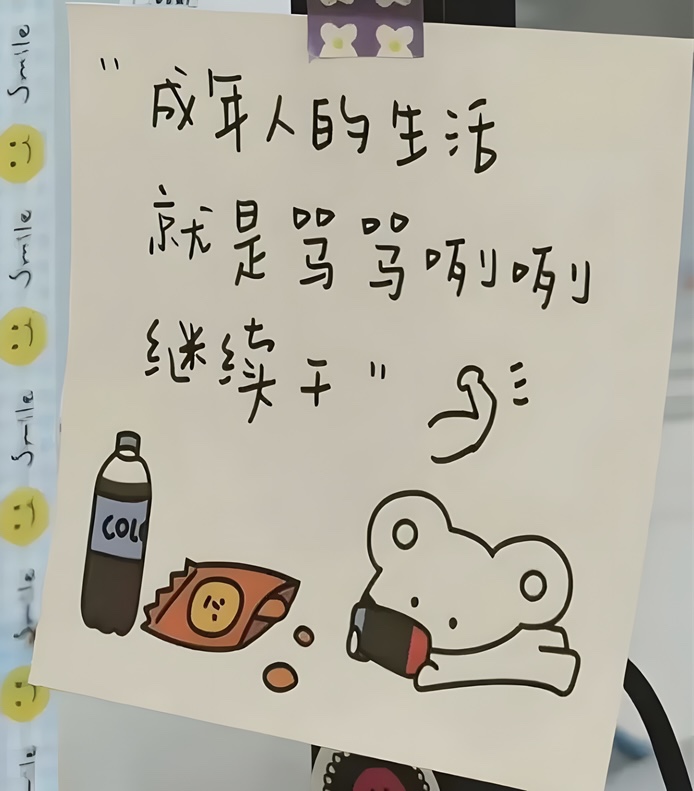 "成年人的生活
就是骂骂咧咧
继续干"
COL
Smile
Smile
Smile
Smile